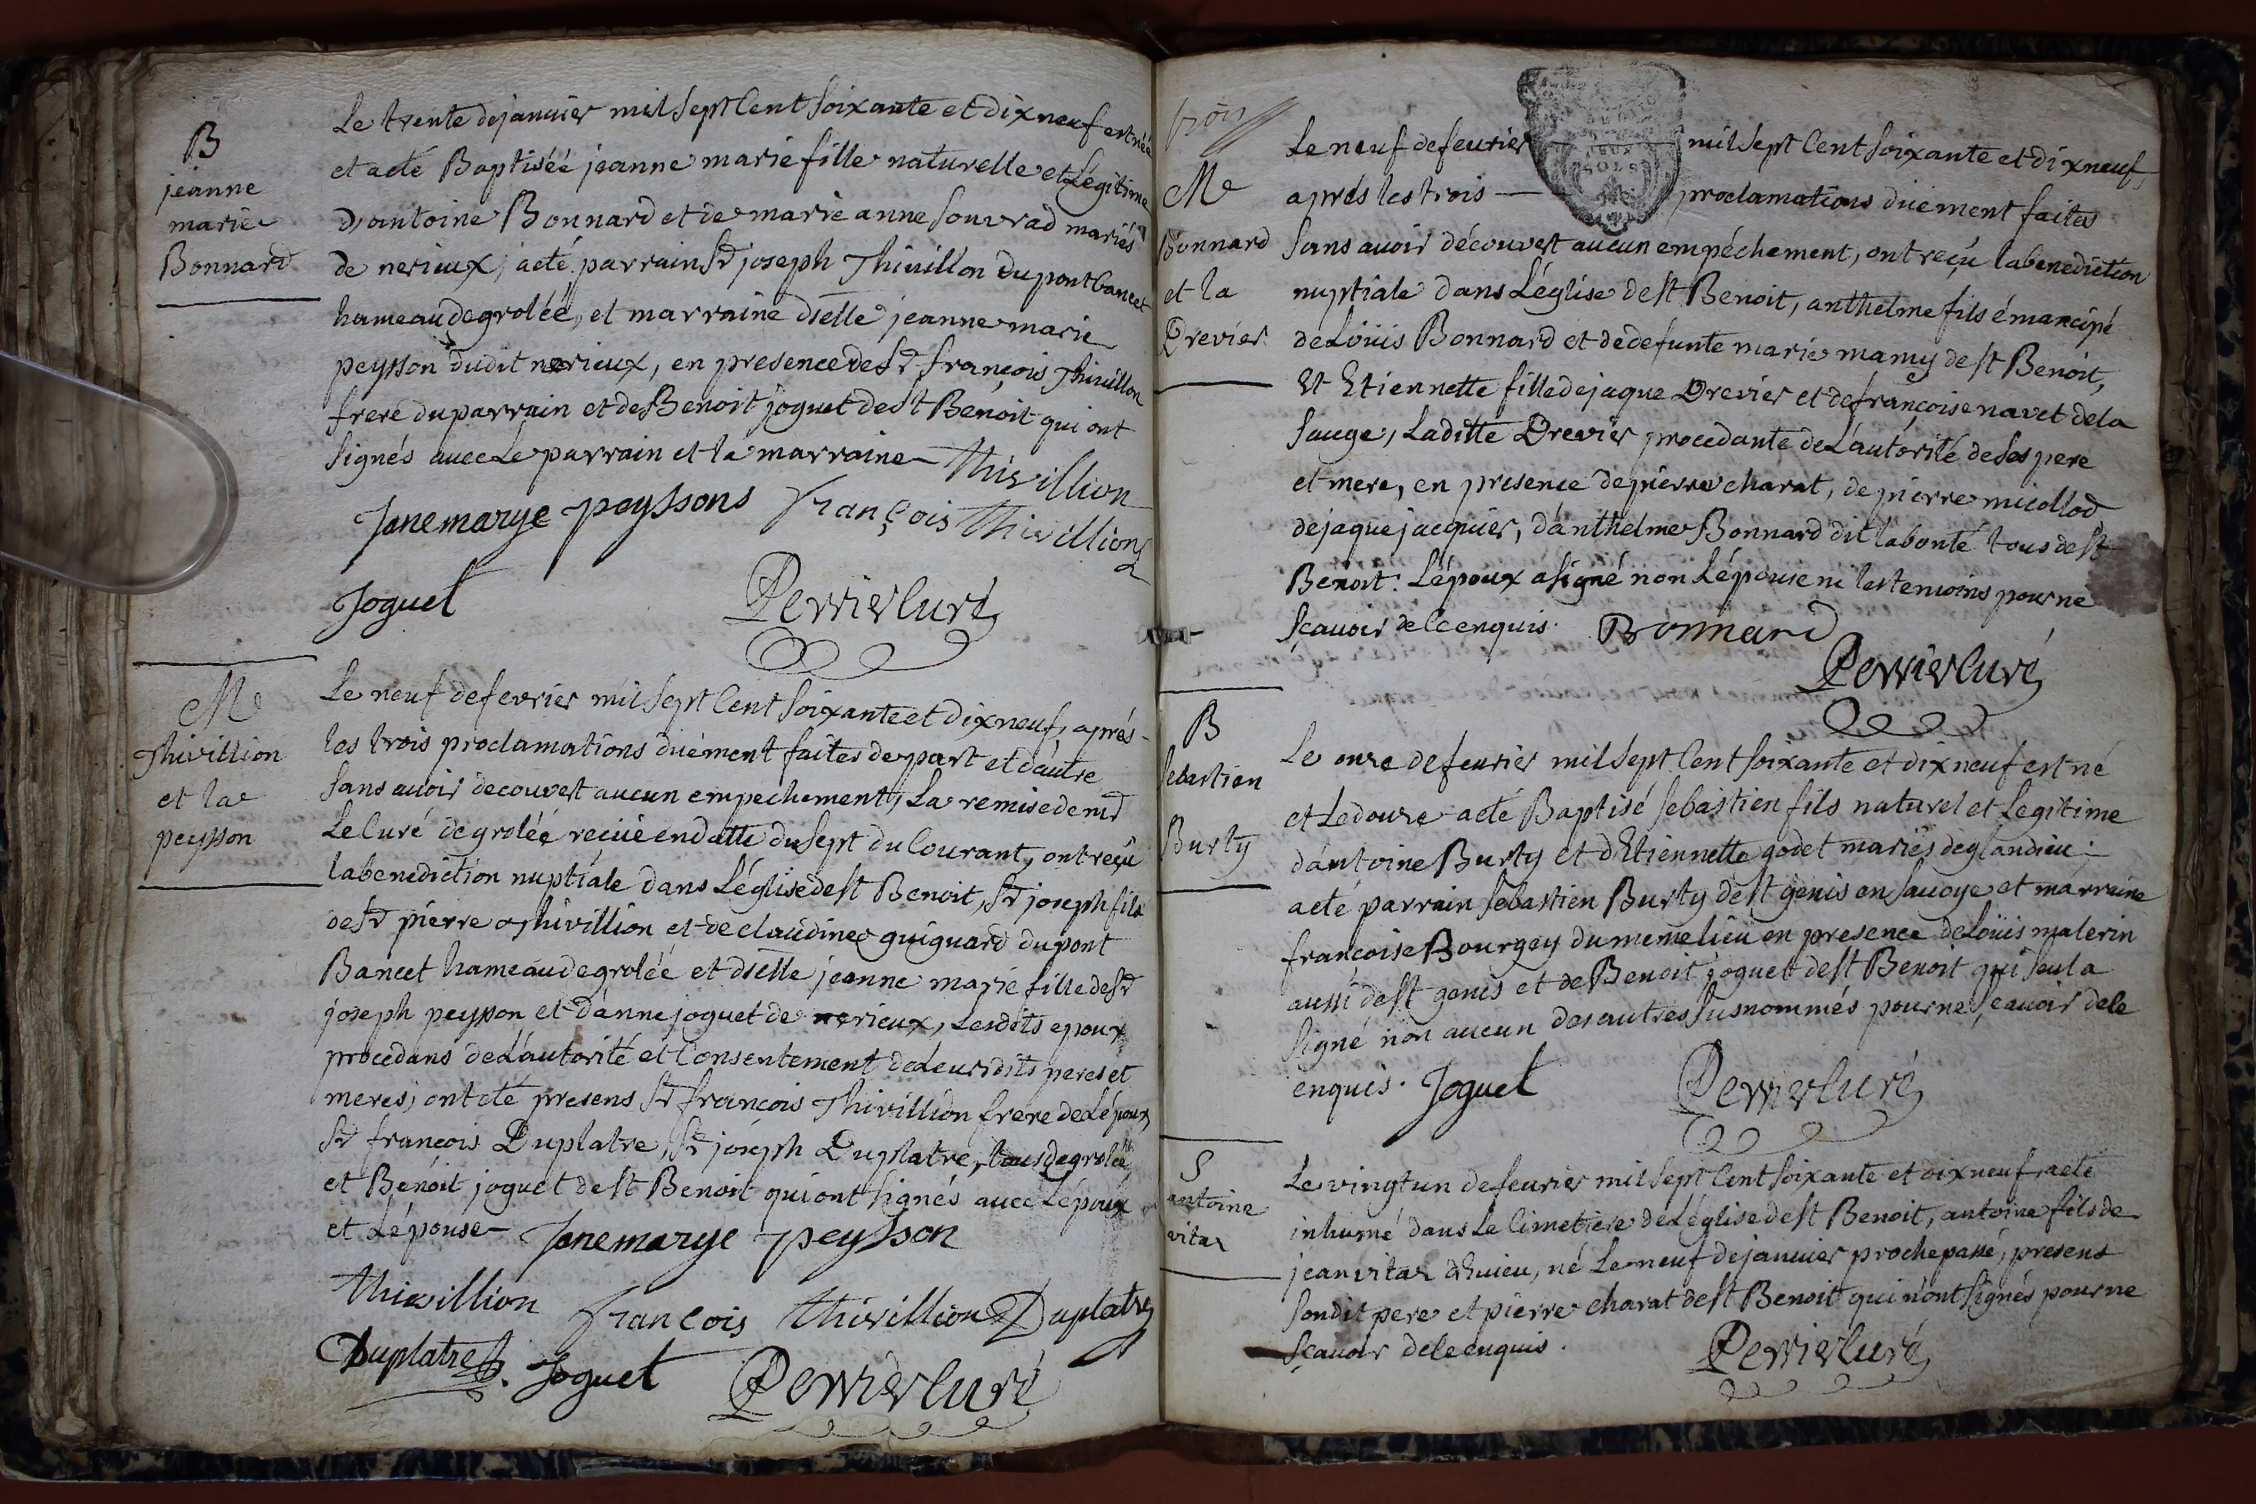 B
jeanne
marie
Bonnard
Le trente de janvier mil sept Cent soixante et dix neuf est née
et a eté Baptisée jeanne marie fille naturelle et Légitime
d'antoine Bonnard et de marie anne souvrad mariés
de nerieux, a eté parrain Sr joseph Thivillon du pont bancet
hameau de grolée, et marraine dselle jeanne marie
peysson dudit nerieux, en presence de Sr françois Thivillon
frere du parrain et de Benoit joguet de St Benoit qui ont
signés avec Le parrain et la marraine Thivillion
Janemarye peyssons françois Thivillion
Joguet Perrier Curé
Me
Thivillion
et la
peysson
Le neuf de fevrier mil sept Cent soixante et dix neuf, aprés
les trois proclamations duëment faites de part et d'autre
sans avoir decouvert aucun empechement, La remise de mr
Le Curé de grolée reçue en datte du sept du Courant, ont reçu
la benediction nuptiale dans L'église de St Benoit, Sr joseph fils
de Sr pierre Thivillion et de claudine guiguard du pont
Bancet hameau de grolée et dselle jeanne marie fille de Sr
joseph peysson et d'anne joguet de nerieux, Lesdits epoux
procedans de L'autorité et Consentement de Leursdits peres et
meres; ont eté presens Sr françois Thivillion frere de L'époux
Sr françois Duplatre, Sr joseph Duplatre, tous de grolée
et Benoit joguet de St Benoit qui ont signés avec L'époux
et L'épouse Janemarye peysson
Thivillion françois Thivillion Duplatre
Duplatre Joguet Perrier Curé
trois
Me
Bonnard
et la
Drevier
Le neuf de feurier mil sept Cent soixante et dix neuf,
aprés les trois — proclamations duëment faites
sans avoir découvert aucun empéchement, ont reçu la benediction
nuptiale dans L'église de St Benoit, anthelme fils émancipé
de Loüis Bonnard et de defunte marie mamy de St Benoit,
Et Etiennette fille de jaque Drevier et de françoise navet de la
sauge, Laditte Drevier procedante de L'autorité de ses pere
et mere, en presence de pierre charat, de pierre micollod
de jaque jacquier, d'anthelme Bonnard dit labonté tous de St
Benoit. L'époux a signé non L'épouse ni les temoins pour ne
sçavoir de Ce enquis. Bonnard
Perrier Curé
B
sebastien
Burty
Le onze de feurier mil sept Cent soixante et dix neuf est né
et Le douze a eté Baptisé sebastien fils naturel et Legitime
d'antoine Burty et d'Etiennette godet mariés de glandieu;
a eté parrain sebastien Burty de St genis en savoye et marraine
françoise Bourgey du meme lieu en presence de Loüis malerin
aussi de St genis et de Benoit joguet de St Benoit qui seul a
signé non aucun des autres susnommés pour ne sçavoir de Ce
enquis. Joguet Perrier Curé
S
antoine
vitaz
Le vingt un de feurier mil sept Cent soixante et dix neuf, a eté
inhumé dans Le Cimetiere de L'église de St Benoit, antoine fils de
jean vitaz d'huieu, né Le neuf de janvier proche passé, presens
sondit pere et pierre charat de St Benoit qui n'ont signés pour ne
sçavoir de Ce enquis.
Perrier Curé